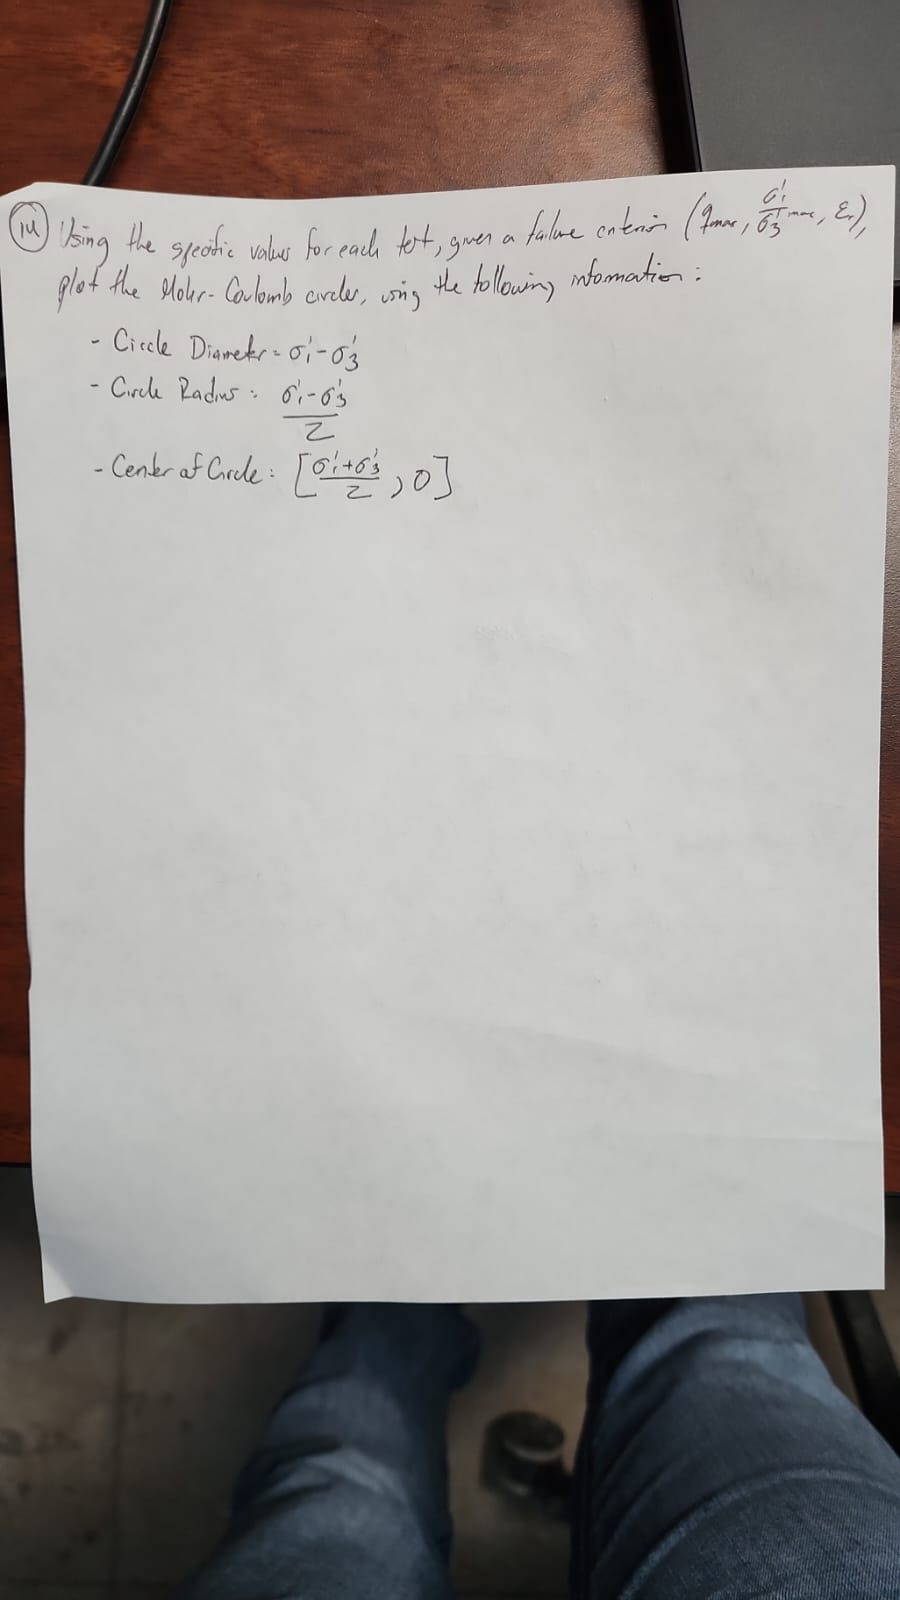 14 Using the specific values for each test, given a failure criterion (qmax, σ'1/σ'3 max, εr),
plot the Mohr-Coulomb circles, using the following information:
- Circle Diameter = σ'1-σ'3
- Circle Radius: σ'1-σ'3/2
- Center of Circle: [σ'1+σ'3/2, 0]